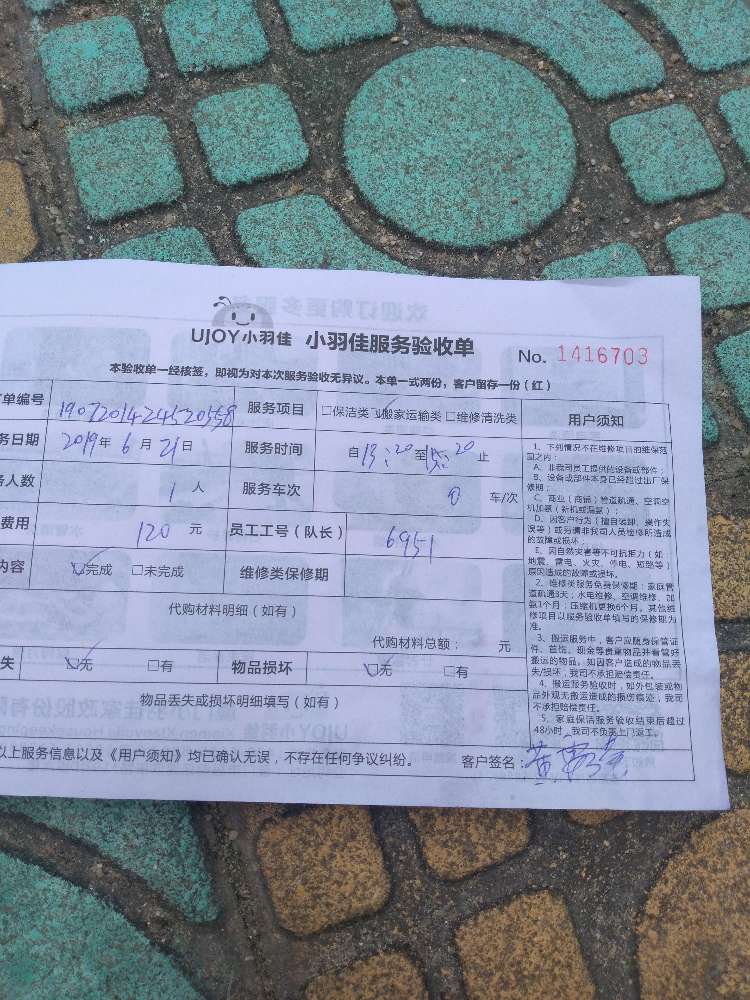 UJOY小羽佳 小羽佳服务验收单 No. 1416703
本验收单一经核签，即视为对本次服务验收无异议。本单一式两份，客户留存一份（红）
单编号 服务项目 □保洁类 ☑搬家运输类 □维修清洗类 用户须知
务日期 2019年6月21日 服务时间 自13:20至15:20止
人数 1人 服务车次 0 车/次
费用 120元 员工工号（队长） 6951
内容 ☑完成 □未完成 维修类保修期
代购材料明细（如有）
代购材料总额： 元
失 ☑无 □有 物品损坏 ☑无 □有
物品丢失或损坏明细填写（如有）
以上服务信息以及《用户须知》均已确认无误，不存在任何争议纠纷。 客户签名：黄
1、下列情况不在维修项目的维保范
围之内：
A、非我司员工提供的设备或部件；
B、设备或部件本身已经超过出厂保
修期；
C、商业（商铺）管道疏通、空调空
机加氨（新机或漏氨）；
D、因客户行为（擅自装卸、操作失
误等）或另请非我司人员检修所造成
的故障或损坏；
E、因自然灾害等不可抗拒力（如
地震、雷电、火灾、停电、短路等）
原因造成的故障或损坏。
2、维修类服务免费保修期：家庭管
道疏通3天；水电维修、空调维修、加
氨1个月；压缩机更换6个月。其他维
修项目以服务验收单填写的保修期为
准。
3、搬运服务中，客户应随身保管证
件、首饰、现金等贵重物品并看管好
搬运的物品。如因客户造成的物品丢
失/损坏，我司不承担赔偿责任。
4、搬运服务验收时，如外包装或物
品外观无搬运造成的损伤痕迹，我司
不承担赔偿责任。
5、家庭保洁服务验收结束后超过
48小时，我司不负责上门返工。